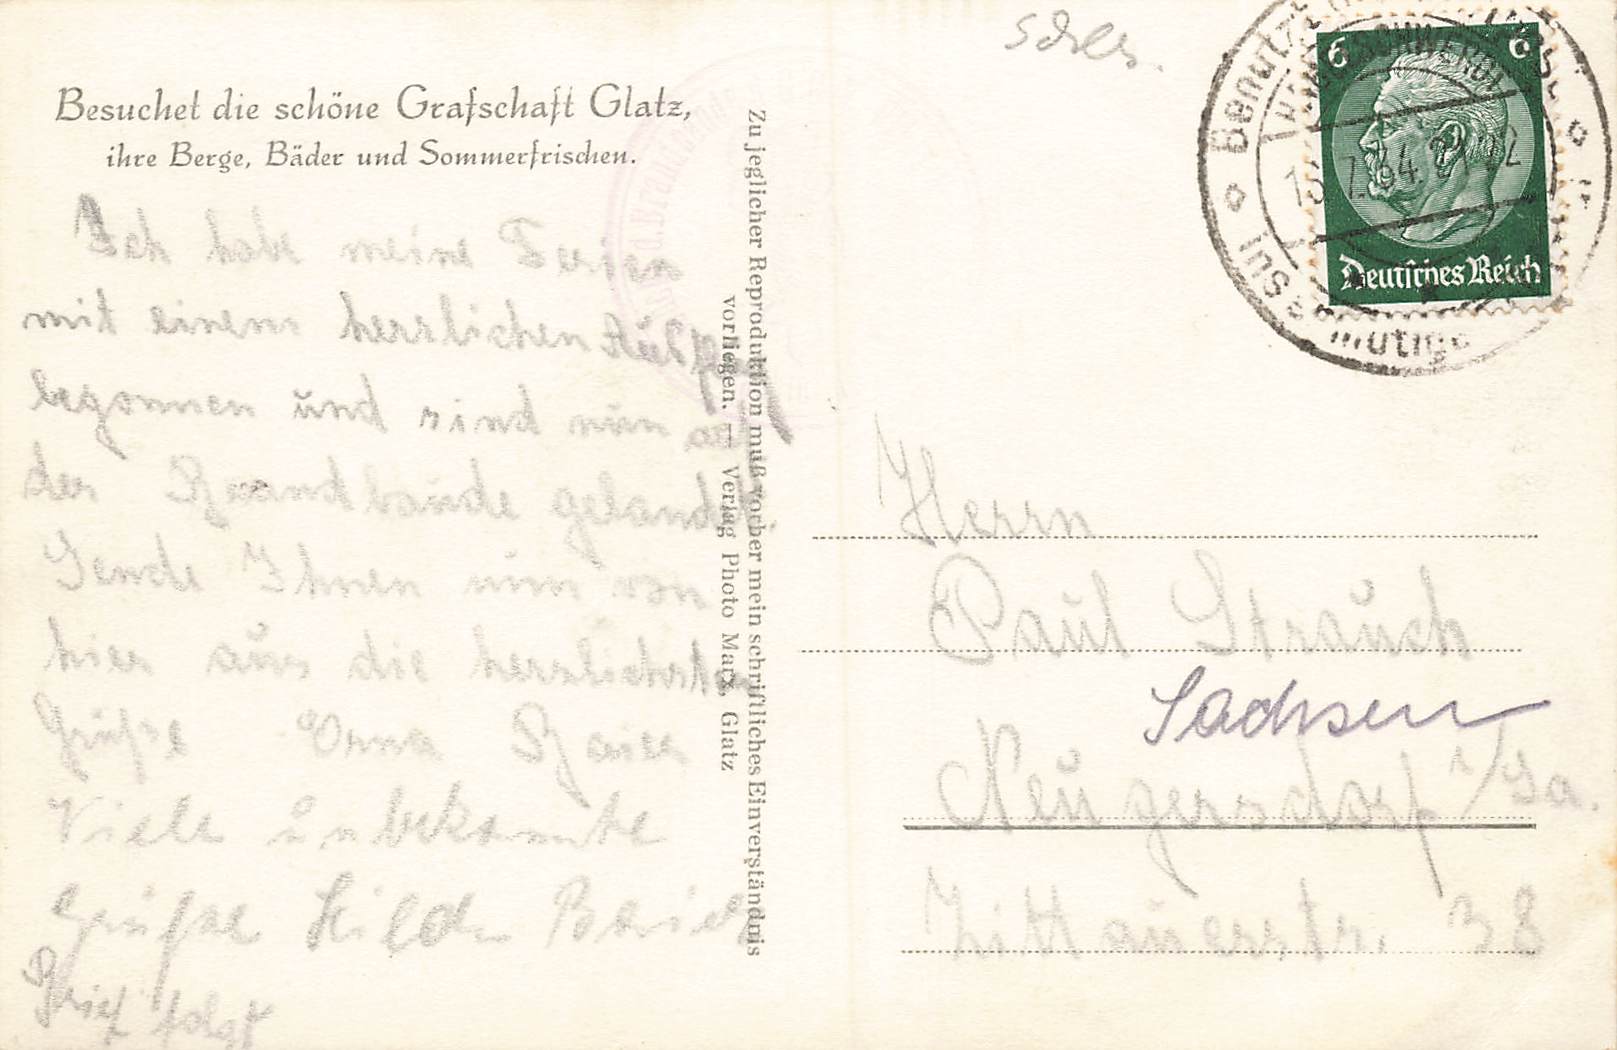 Besuchet die schöne Grafschaft Glatz,
ihre Berge, Bäder und Sommerfrischen.
Ich habe meine Ferien
mit einem herrlichen
begonnen und sind nun
der Brandbaude gelandet.
Sende Ihnen nun von
hier aus die herzlichsten
Grüße Erna
Viele unbekannte
Grüße Hilde
Brief folgt
Zu jeglicher Reproduktion muß vorher mein schriftliches Einverständnis
vorliegen. — Verlag Photo Marx, Glatz
Schles.
6 6
Deutsches Reich
Herrn
Paul Strauch
Sachsen
Neugersdorf i/Sa.
Zittauerstr. 38